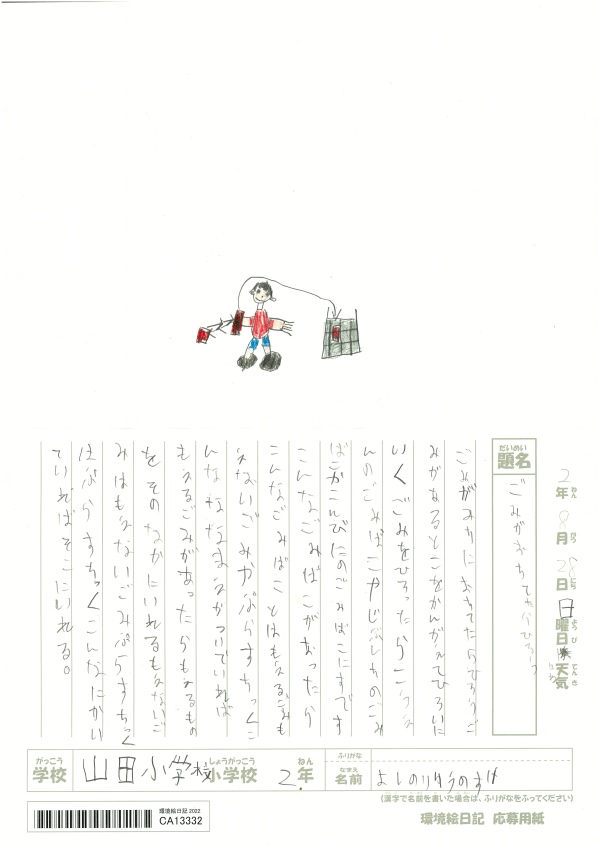 2年8月28日日曜日 天気
ねん がつ にち ようび てんき
だいめい
題名
ごみがおちてたらひろう
ごみがみちにおちてたらひろうご
みがあるとこをかんがえてひろいに
いくごみをひろったらこうえ
んのごみばこかじぶんちのごみ
ばこかこんびにのごみばこにすてす
こんなごみばこがあったら
こんなごみばことはもえるごみも
えないごみかぷらすちっくこ
んななまえがついていれば
もえるごみがあったらもえるもの
をそのなかにいれるもえないご
みはもえないごみぷらすちっく
はぷらすちっくこんなにかい
ていればそこにいれる。
がっこう
学校
山田小学校
しょうがっこう
小学校
2.年
ねん
ふりがな
なまえ
名前
よしのりゅうのすけ
(漢字で名前を書いた場合は、ふりがなをふってください)
環境絵日記 2022
CA13332
環境絵日記 応募用紙